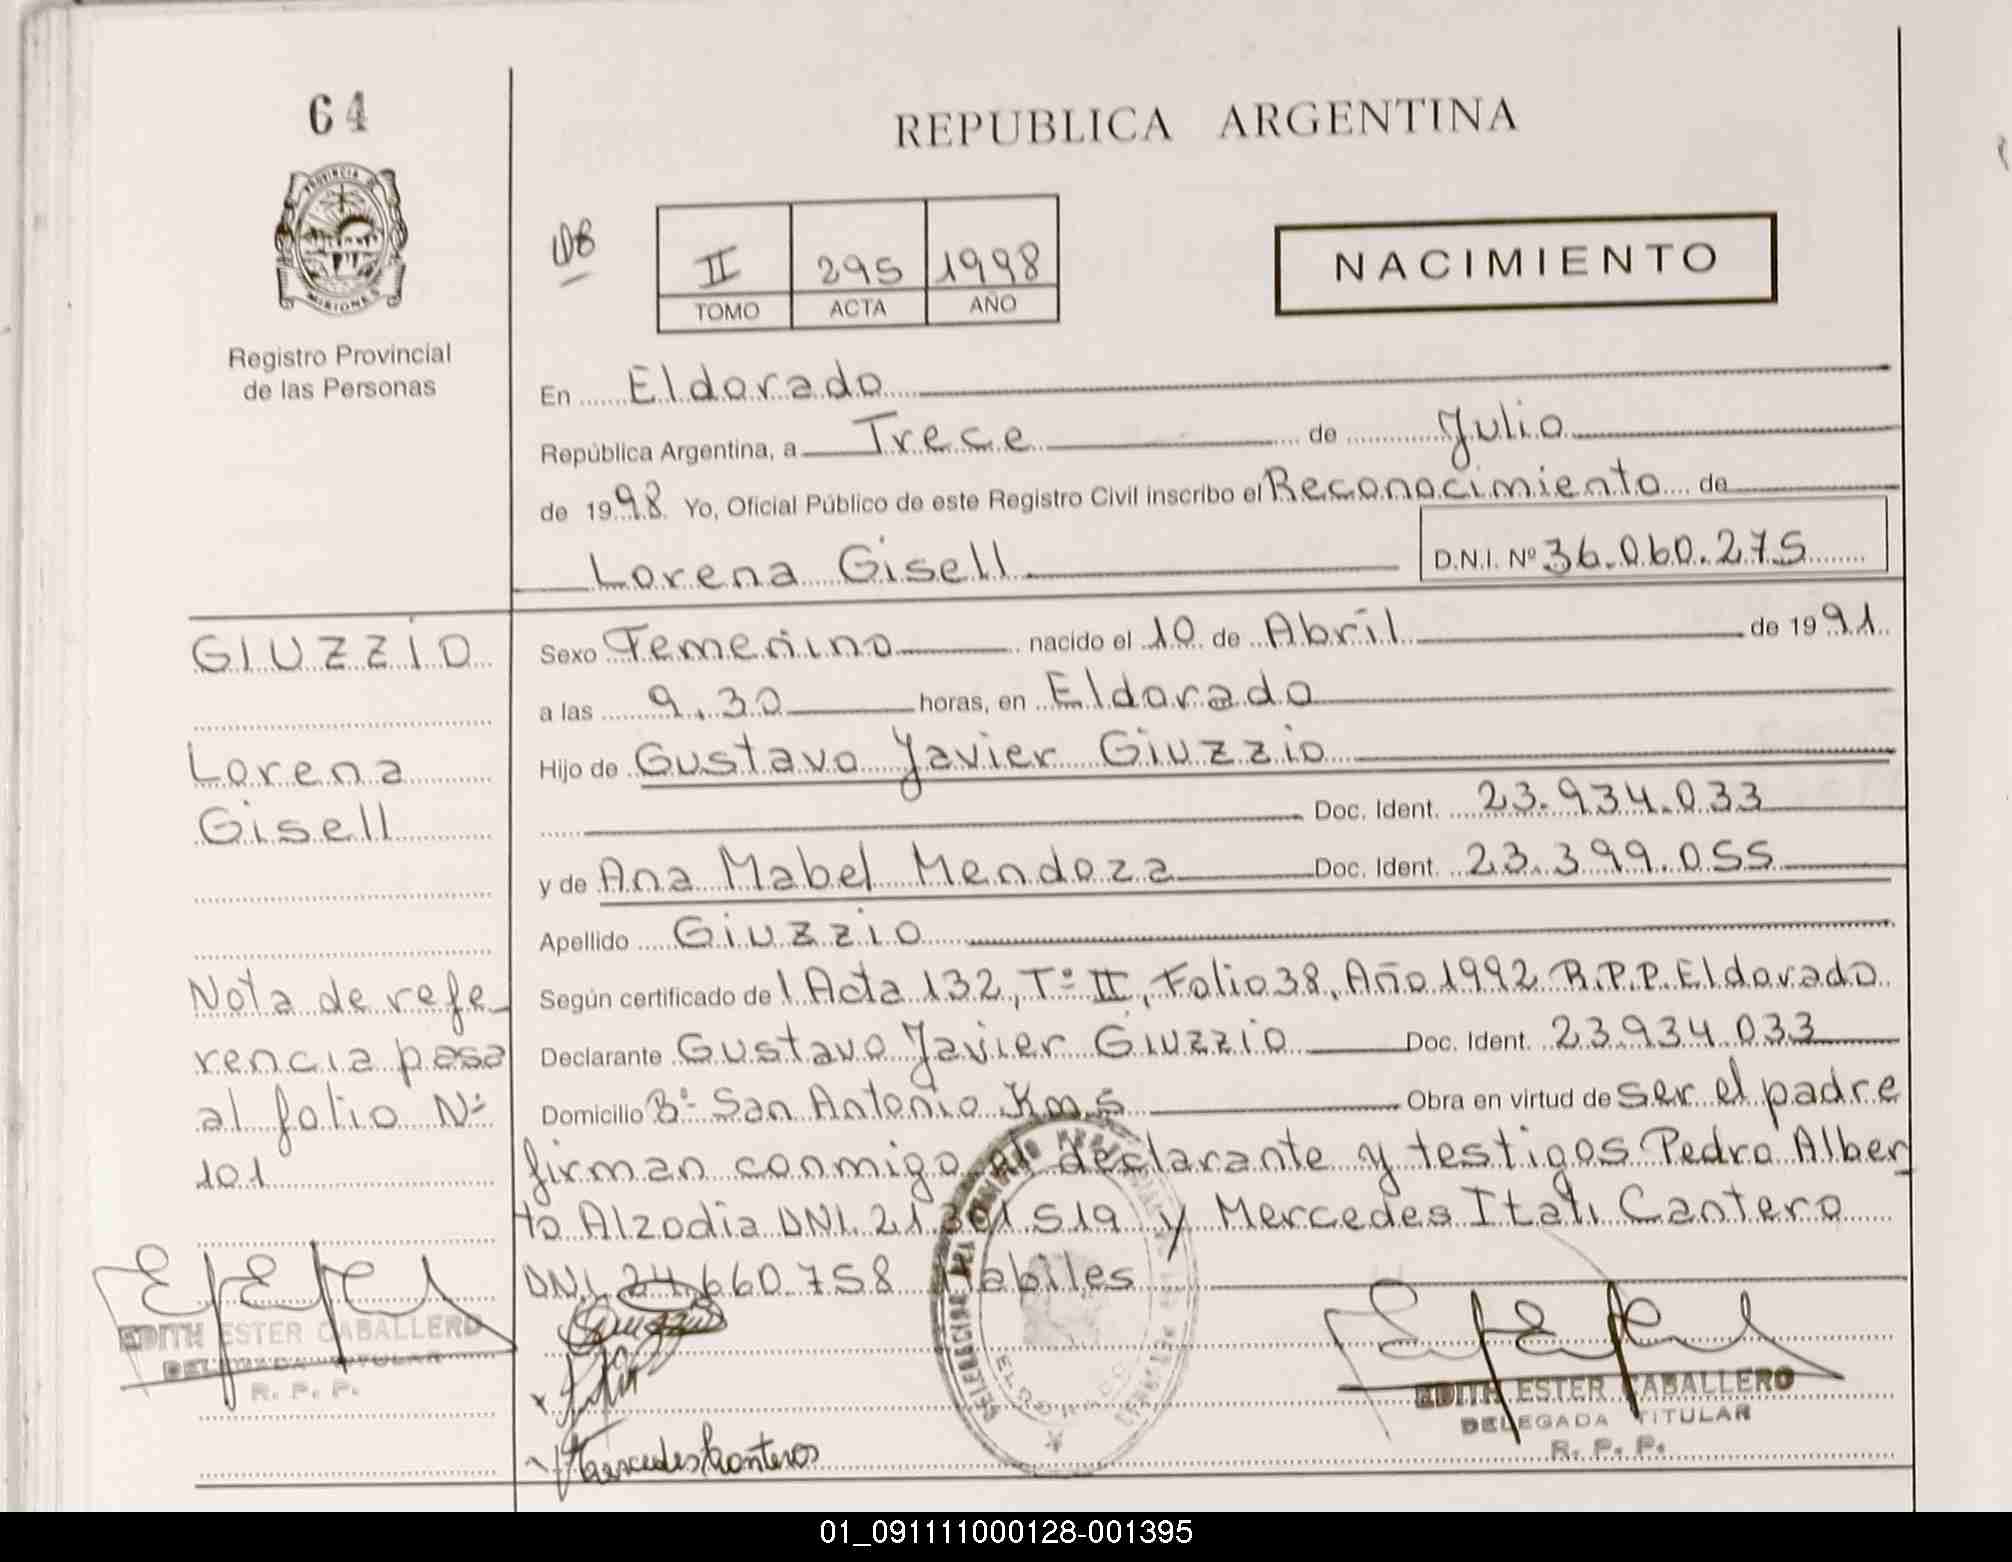 64
REPUBLICA ARGENTINA
PROVINCIA DE
MISIONES
Registro Provincial
de las Personas
II 295 1998
TOMO ACTA AÑO
NACIMIENTO
En Eldorado
República Argentina, a Trece de Julio
de 1998 Yo, Oficial Público de este Registro Civil inscribo el Reconocimiento de
Lorena Gisell D.N.I. Nº 36.060.275
GIUZZIO
Lorena
Gisell
Nota de refe-
rencia pasa
al folio Nº
101
EDITH ESTER CABALLERO
DELEGADA TITULAR
R. P. P.
Sexo Femenino nacido el 10 de Abril de 1991
a las 9.30 horas, en Eldorado
Hijo de Gustavo Javier Giuzzio
Doc. Ident. 23.934.033
y de Ana Mabel Mendoza Doc. Ident. 23.399.055
Apellido Giuzzio
Según certificado de l Acta 132, Tº II, Folio 38, Año 1992 R.P.P. Eldorado
Declarante Gustavo Javier Giuzzio Doc. Ident. 23.934.033
Domicilio Bº San Antonio Km 5 Obra en virtud de ser el padre
firman conmigo el declarante y testigos Pedro Alber
to Alzodia DNI. 21.301.519 y Mercedes Itatí Cantero
DNI. 24.660.758 Habiles
EDITH ESTER CABALLERO
DELEGADA TITULAR
R. P. P.
01_091111000128-001395